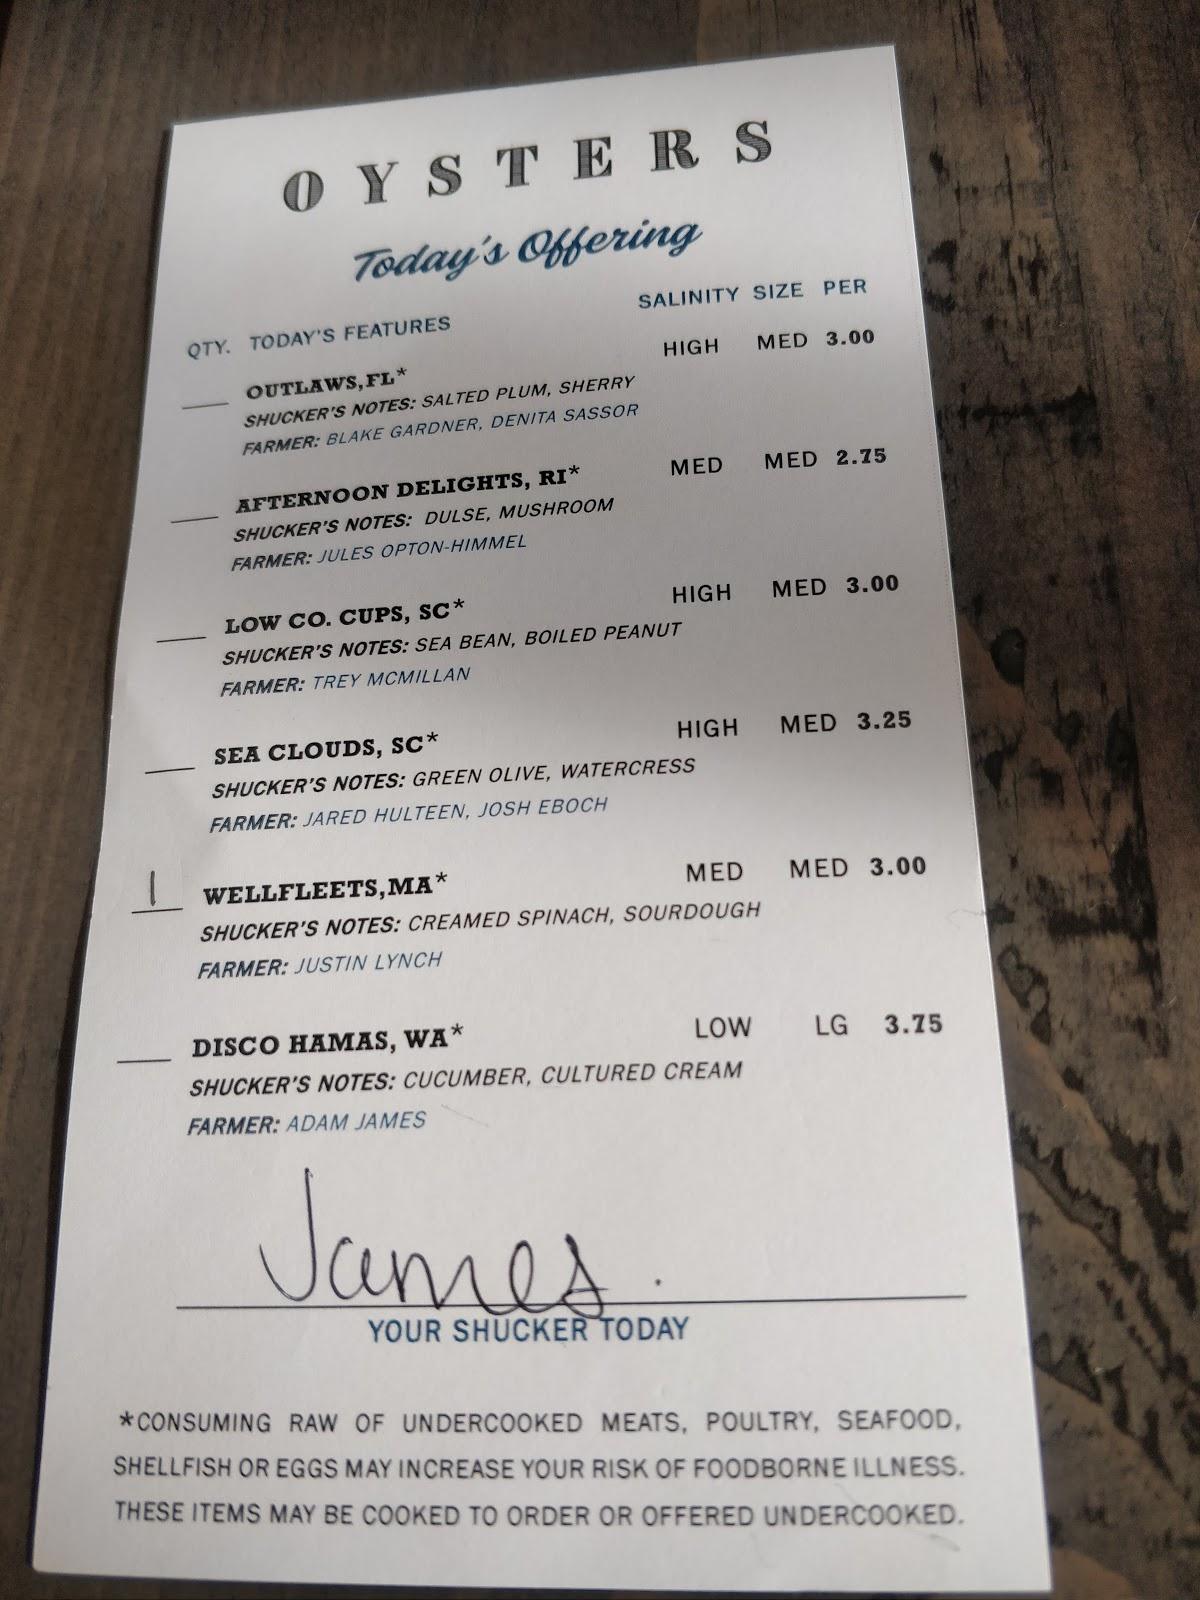 OYSTERS
Today's Offering
QTY. TODAY'S FEATURES SALINITY SIZE PER
OUTLAWS,FL* HIGH MED 3.00
SHUCKER'S NOTES: SALTED PLUM, SHERRY
FARMER: BLAKE GARDNER, DENITA SASSOR
AFTERNOON DELIGHTS, RI* MED MED 2.75
SHUCKER'S NOTES: DULSE, MUSHROOM
FARMER: JULES OPTON-HIMMEL
LOW CO. CUPS, SC* HIGH MED 3.00
SHUCKER'S NOTES: SEA BEAN, BOILED PEANUT
FARMER: TREY MCMILLAN
SEA CLOUDS, SC* HIGH MED 3.25
SHUCKER'S NOTES: GREEN OLIVE, WATERCRESS
FARMER: JARED HULTEEN, JOSH EBOCH
1 WELLFLEETS,MA* MED MED 3.00
SHUCKER'S NOTES: CREAMED SPINACH, SOURDOUGH
FARMER: JUSTIN LYNCH
DISCO HAMAS, WA* LOW LG 3.75
SHUCKER'S NOTES: CUCUMBER, CULTURED CREAM
FARMER: ADAM JAMES
James.
YOUR SHUCKER TODAY
*CONSUMING RAW OF UNDERCOOKED MEATS, POULTRY, SEAFOOD,
SHELLFISH OR EGGS MAY INCREASE YOUR RISK OF FOODBORNE ILLNESS.
THESE ITEMS MAY BE COOKED TO ORDER OR OFFERED UNDERCOOKED.